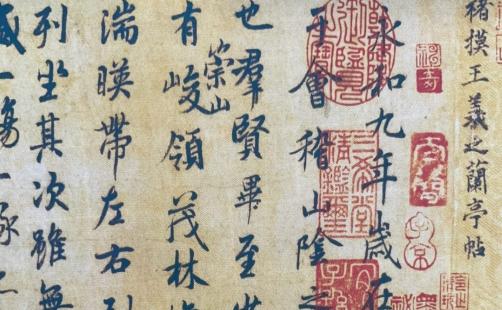 褚摸王羲之蘭亭帖
子京
三希堂精鑑璽
永和九年歲在
會稽山陰之
也羣賢畢至
崇山
有峻領茂林
湍暎帶左右
列坐其次雖無
一觴一